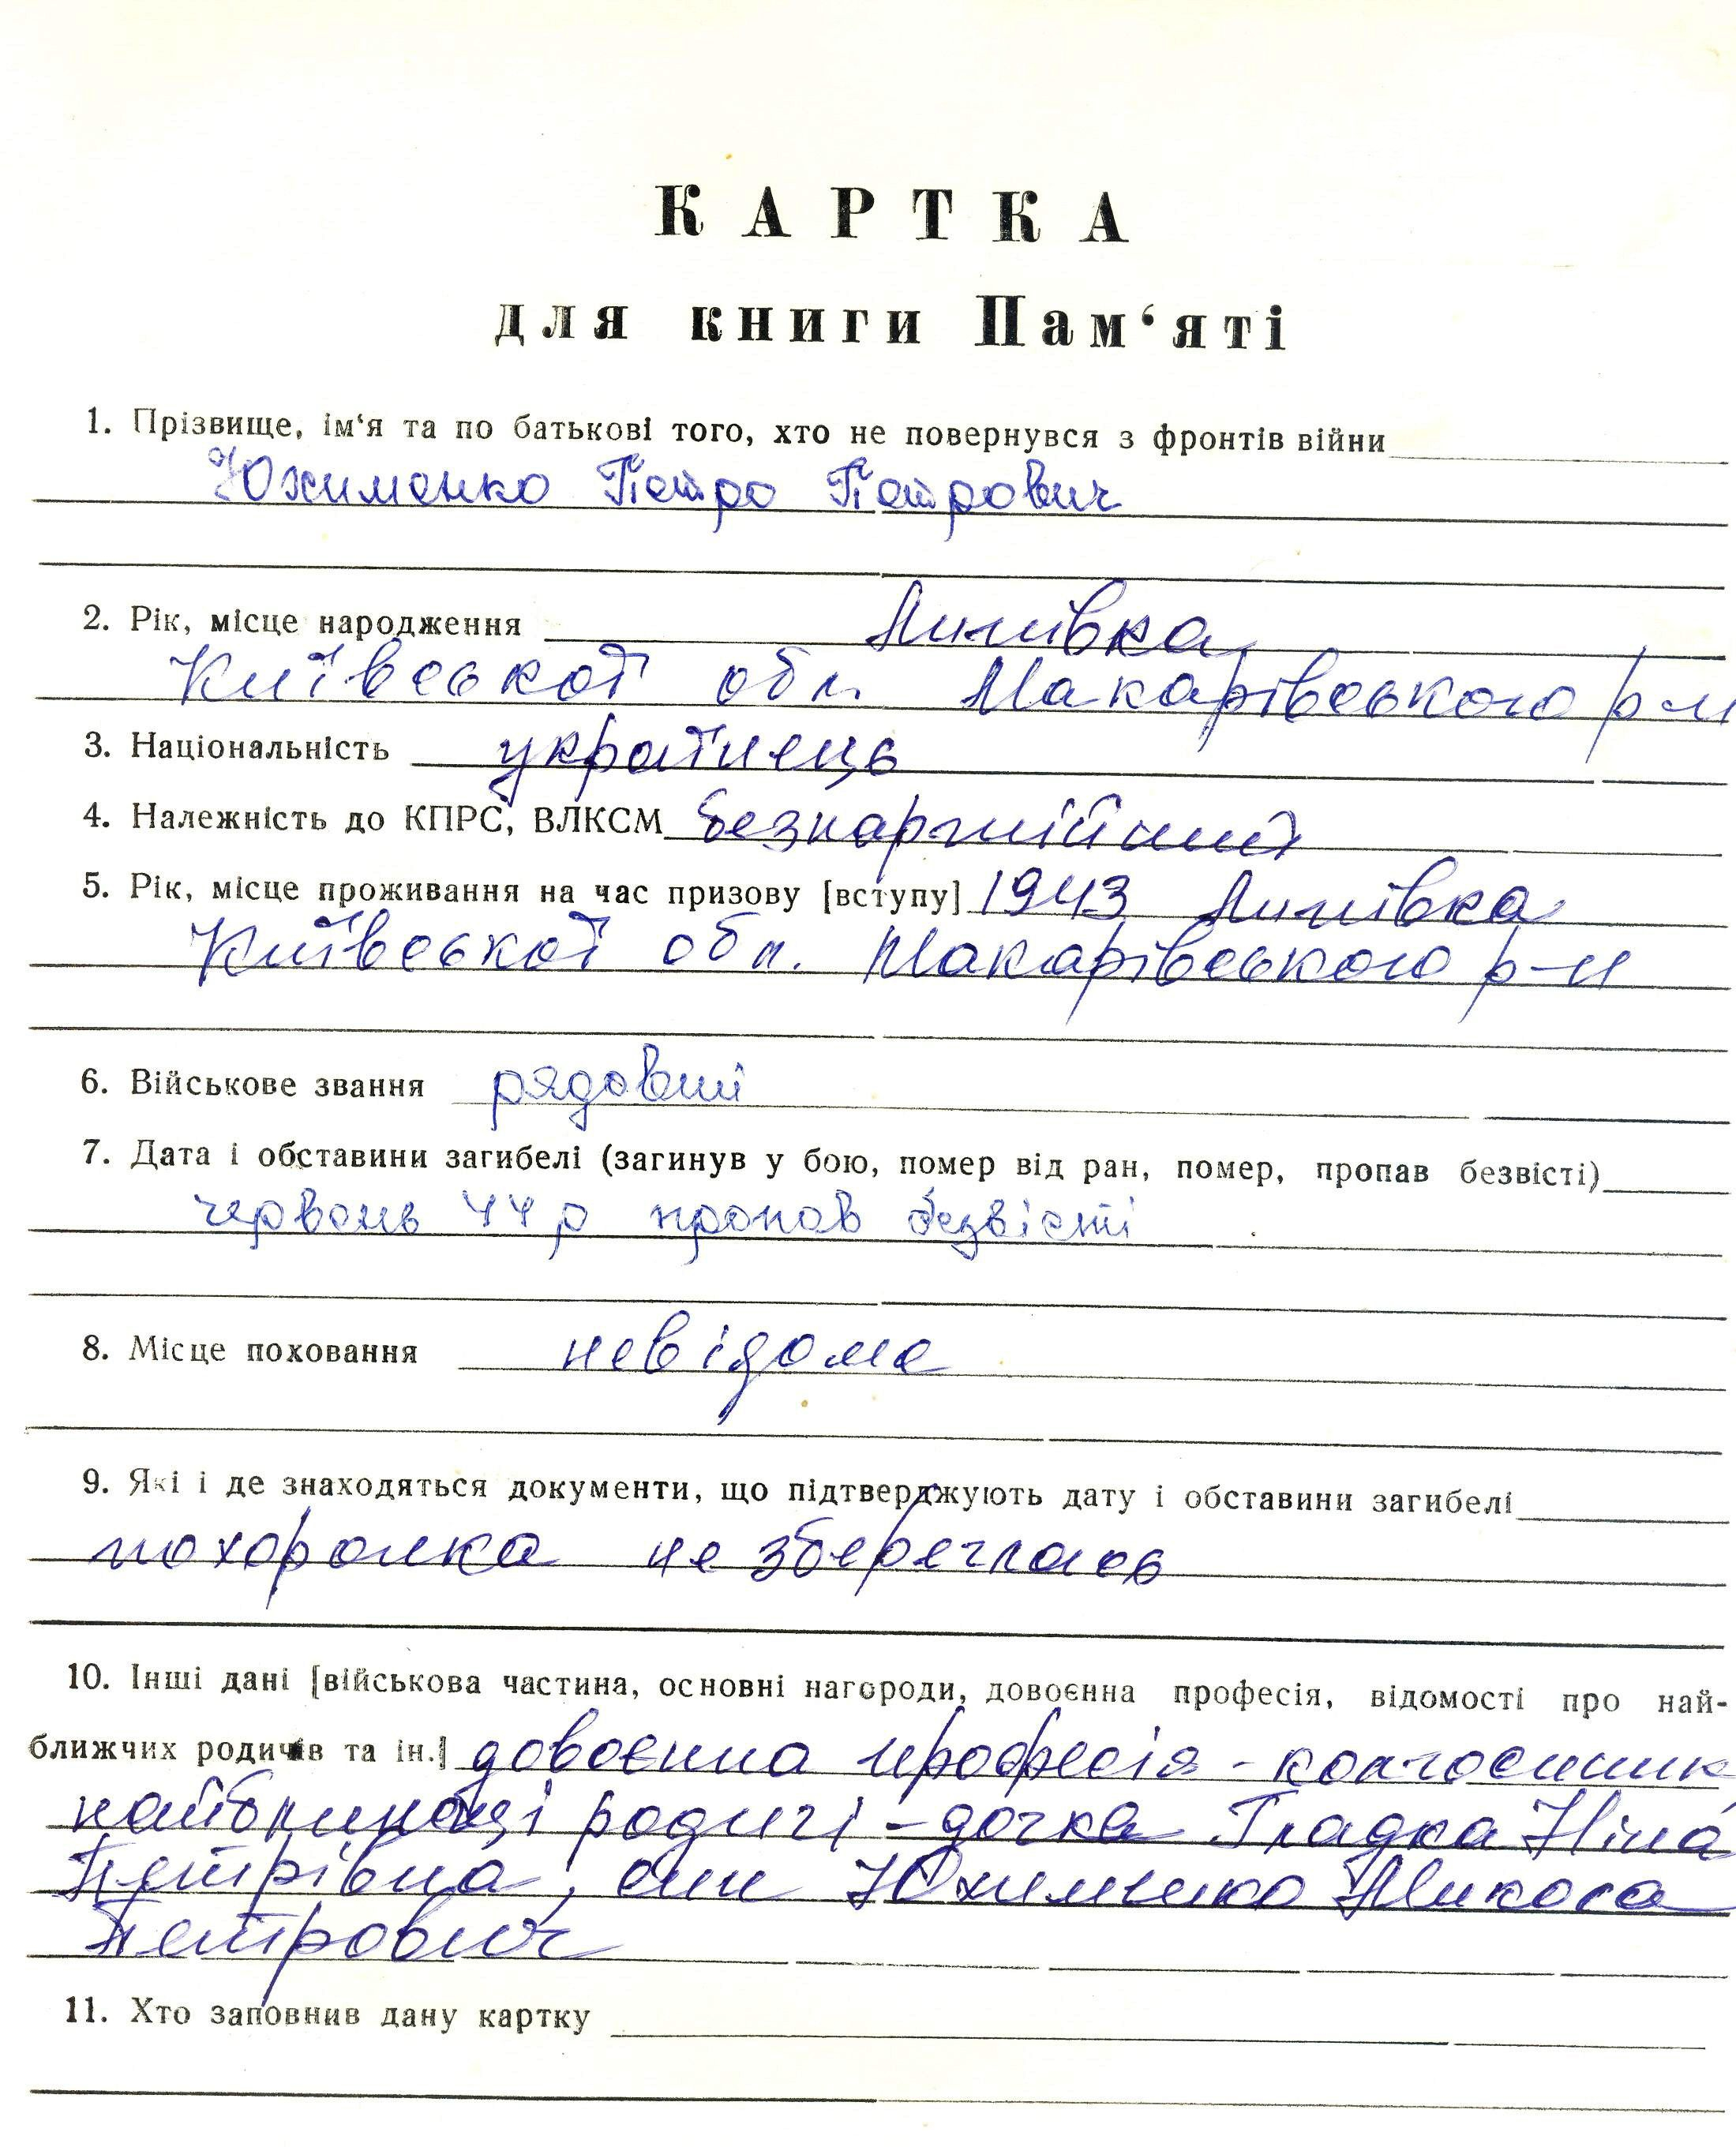 КАРТКА
для книги Пам‘яті
1. Прізвище, ім‘я та по батькові того, хто не повернувся з фронтів війни
Юхименко Петро Петрович
2. Рік, місце народження Липівка
Київської обл. Макарівського р-н
3. Національність українець
4. Належність до КПРС, ВЛКСМ безпартійний
5. Рік, місце проживання на час призову [вступу] 1943 Липівка
Київської обл. Макарівського р-н
6. Військове звання рядовий
7. Дата і обставини загибелі (загинув у бою, помер від ран, помер, пропав безвісті)
червень 44 р пропав безвісті
8. Місце поховання невідоме
9. Які і де знаходяться документи, що підтверджують дату і обставини загибелі
похоронка не збереглась
10. Інші дані [військова частина, основні нагороди, довоєнна професія, відомості про най-
ближчих родичів та ін.] довоєнна професія - колгоспник
найближчі родичі - дочка Гладка Ніна
Петрівна, син Юхименко Микола
Петрович
11. Хто заповнив дану картку